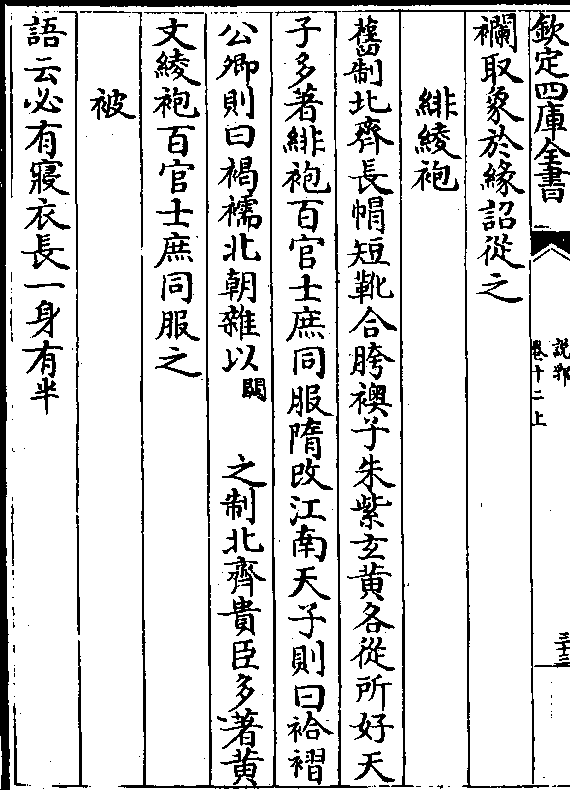 欽定四庫全書
說郛
卷十二上
三十三
襴取象於緣詔從之
緋綾袍
舊制北齊長㡌短靴合胯襖子朱紫玄黄各從所好天
子多著緋袍百官士庶同服隋改江南天子則曰袷褶
公卿則曰褐襦北朝雜以闕 之制北齊貴臣多著黄
文綾袍百官士庶同服之
被
語云必有寢衣長一身有半